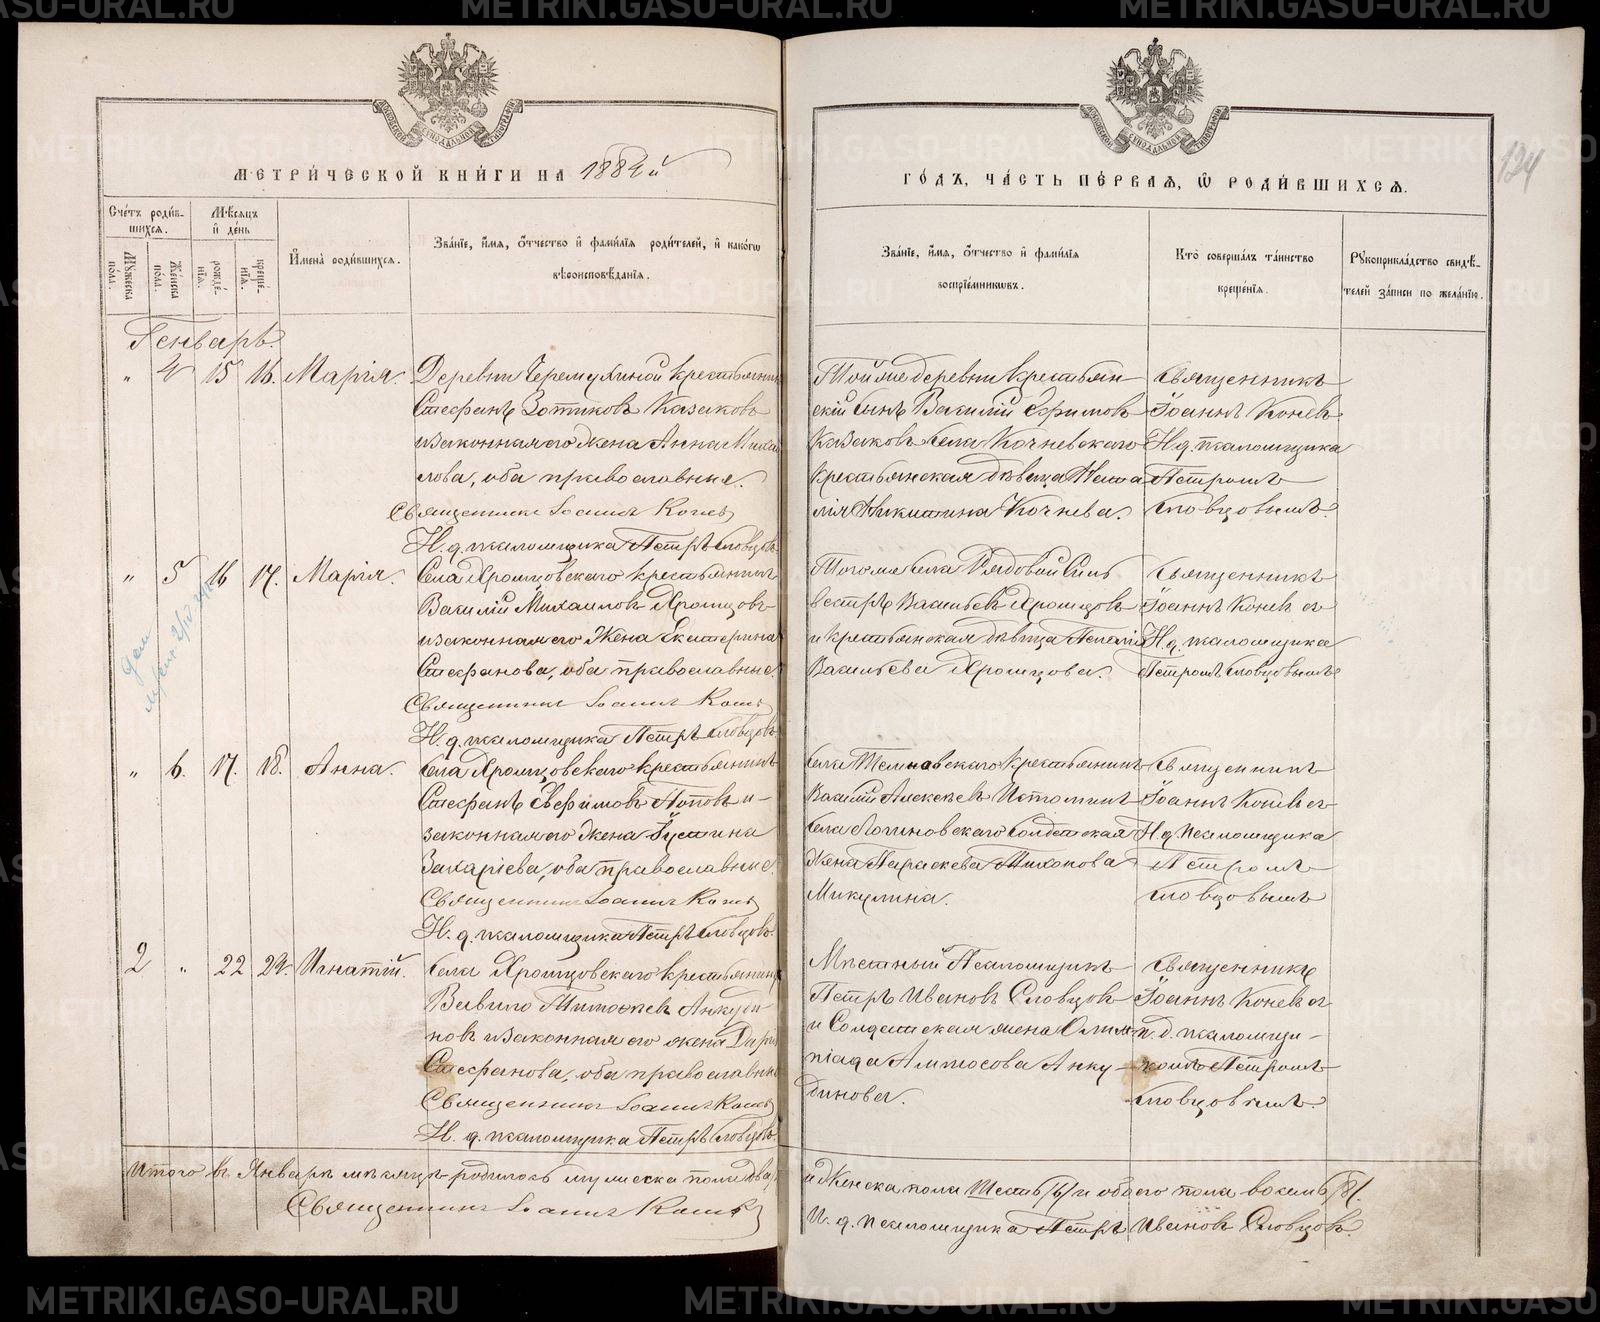 МЕТРИ́ЧЕСКОЙ КНИ́ГИ НА 1884й
ГО́ДЪ, ЧА́СТЬ ПЕ́РВАЯ, Ѡ РОДИ́ВШИХСЯ.
124
Сче́тъ роди́в-
шихся.
Мѣсяцъ
и де́нь
Мꙋ́жеска по́ла.
Же́нска по́ла.
рожде́-
нїя.
креще́-
нїя.
И҆мена̀ роди́вшихся.
Зва́нїе, и҆́мя, ѻ҆́тчество и҆ фами́лїя роди́телей, и҆ како́гѡ
вѣроисповѣ́данїя.
Зва́нїе, и҆́мя, ѻ҆́тчество и҆ фами́лїя
воспрїе́мникѡвъ.
Кто̀ соверша́лъ та́инство
креще́нїя.
Рꙋкоприкла́дство свидѣ́-
телей за́писи по жела́нїю.
Генварь.
" 4 15 16. Марія.
Деревни Черемухиной крестьянинъ
Стефанъ Зотиковъ Казаковъ
и законная его жена Анна Михаи
лова, оба православные.
Священникъ Іоаннъ Коневъ
Н. д. псаломщика Петръ Словцовъ
Той же деревни крестьян-
скій сынъ Василій Ефимовъ
Казаковъ села Кочневскаго
крестьянская дѣвица Ната
лія Никитина Кочнева.
Священникъ
Іоаннъ Коневъ
Н. д. псаломщика
Петромъ
Словцовымъ.
" 5 16 17. Марія.
Села Хромцовскаго крестьянинъ
Василій Михаиловъ Хромцовъ
и законная его жена Екатерина
Стефанова, оба православные.
Священникъ Іоаннъ Коневъ
Н. д. псаломщика Петръ Словцовъ
Того же села Рядовой Силь
вестръ Васильевъ Хромцовъ
и крестьянская дѣвица
Васильева Хромцова.
Священникъ
Іоаннъ Коневъ съ
Н. д. псаломщика
Петромъ Словцовымъ
" 6. 17. 18. Анна.
Села Хромцовскаго крестьянинъ
Стефанъ Ефимовъ Поповъ и
законная его жена Іустина
Захаріева, оба православные.
Священникъ Іоаннъ Коневъ
Н. д. псаломщика Петръ Словцовъ
Села Темновскаго крестьянинъ
Василій Алексѣевъ Истоминъ
села Логиновскаго солдатская
жена Параскева Тихонова
Микулина.
Священникъ
Іоаннъ Коневъ съ
Н. д. псаломщика
Петромъ
Словцовымъ
2 " 22 24. Игнатій.
Села Хромцовскаго крестьянинъ
Вавило Тимоѳеевъ Анкуди
новъ и законная его жена Дарія
Стефанова, оба православные
Священникъ Іоаннъ Коневъ
Н. д. псаломщика Петръ Словцовъ
Мѣстный Псаломщикъ
Петръ Ивановъ Словцовъ
и Солдатская жена Олим
піада Амосова Анку-
динова.
Священникъ
Іоаннъ Коневъ съ
и. д. псаломщи-
комъ Петромъ
Словцовымъ.
Итого въ Январѣ мѣсяцѣ родилось мужеска пола два,
и женска пола шесть /6/ и обоего пола восемь /8/.
Священникъ Іоаннъ Коневъ
И. д. псаломщика Петръ Ивановъ Словцовъ.
METRIKI.GASO-URAL.RU